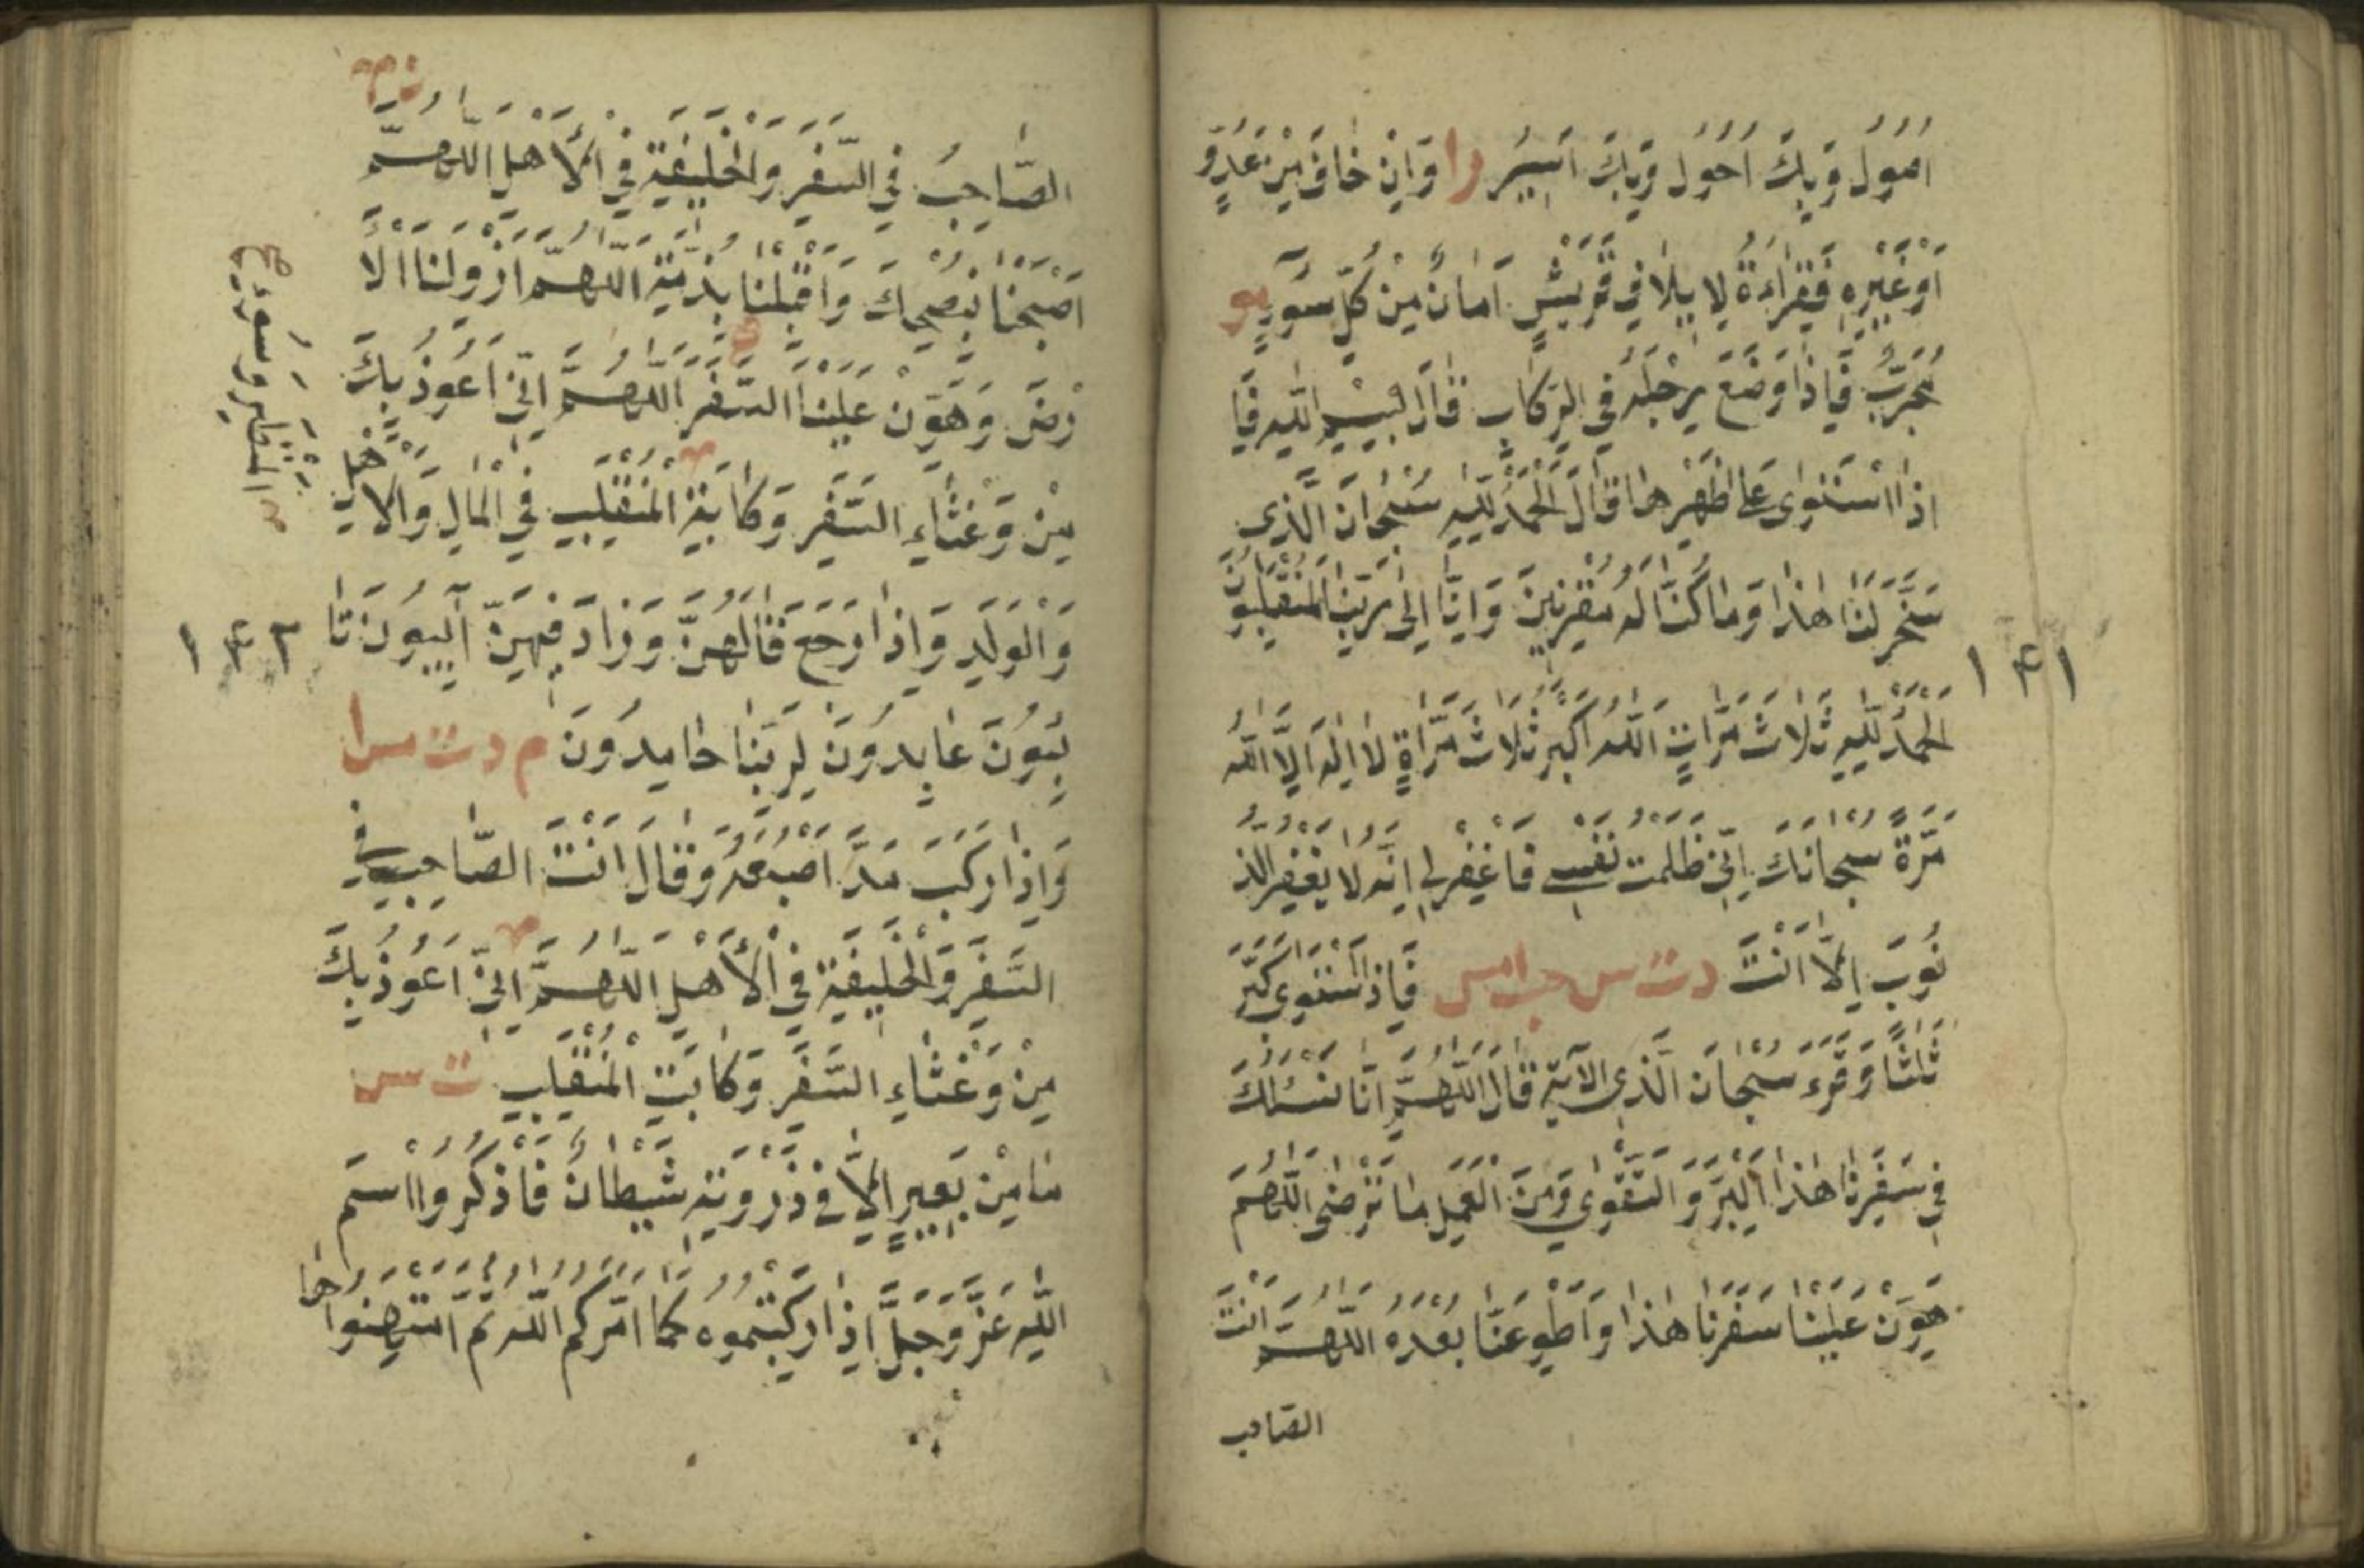 اَصُولُ وَبِكَ اَحُولُ وَبِكَ اَسِيرُ را وَاِنْ خَافَ مِنْ عَدُوٍّ
اَوْ غَيْرِهِ فَقِرَاءَةُ لِاِيلَافِ قُرَيْشٍ اَمَانٌ مِنْ كُلِّ سُوٓءٍ مو
مُجَرَّبٌ فَاِذَا وَضَعَ رِجْلَهُ فِي الرِّكَابِ قَالَ بِسْمِ اللّٰهِ فَا
اِذَا اسْتَوٰى عَلٰى ظَهْرِهَا قَالَ الْحَمْدُ لِلّٰهِ سُبْحَانَ الَّذِى
سَخَّرَ لَنَا هٰذَا وَمَا كُنَّا لَهُ مُقْرِنِينَ وَاِنَّا اِلٰى رَبِّنَا لَمُنْقَلِبُونَ
الْحَمْدُ لِلّٰهِ ثَلَاثَ مَرَّاتٍ اَللّٰهُ اَكْبَرُ ثَلَاثَ مَرَّاةٍ لَا اِلٰهَ اِلَّا اللّٰهُ
١٤١
مَرَّةً سُبْحَانَكَ اِنِّي ظَلَمْتُ نَفْسِي فَاغْفِرْلِي اِنَّهُ لَا يَغْفِرُ الذُّ
نُوبَ اِلَّا اَنْتَ د ت س حب امس فَاِذَا اسْتَوٰى كَبَّرَ
ثَلٰثًا وَقَرَءَ سُبْحَانَ الَّذِى الْآيَةَ قَالَ اللّٰهُمَّ اِنَّا نَسْئَلُكَ
فِي سَفَرِنَا هٰذَا الْبِرَّ وَالتَّقْوٰى وَمِنَ الْعَمَلِ مَا تَرْضٰى اَللّٰهُمَّ
هَوِّنْ عَلَيْنَا سَفَرَنَا هٰذَا وَاَطْوِ عَنَّا بُعْدَهُ اَللّٰهُمَّ اَنْتَ
الصاحب
الصَّاحِبُ فِي السَّفَرِ وَالْخَلِيفَةُ فِي الْاَهْلِ اَللّٰهُمَّ
اَصْبِحْنَا بِنُصْحِكَ وَاَقْبِلْنَا بِذِمَّةٍ اَللّٰهُمَّ ازْوِ لَنَا الْاَ
رْضَ وَهَوِّنْ عَلَيْنَا السَّفَرَ اَللّٰهُمَّ اِنِّي اَعُوذُ بِكَ
مِنْ وَعْثَاءِ السَّفَرِ وَكَابَةِ الْمُنْقَلَبِ فِي الْمَالِ وَالْاَهْلِ
وَالْوَلَدِ وَاِذَا رَجَعَ قَالَهُنَّ وَزَادَ فِيهِنَّ آيِبُونَ تَا
١٤٢
ئِبُونَ عَابِدُونَ لِرَبِّنَا حَامِدُونَ م د ت س ا
وَاِذَا رَكِبَ مَدَّ اَصْبُعَهُ وَقَالَ اَنْتَ الصَّاحِبُ فِي
السَّفَرِ وَالْخَلِيفَةُ فِي الْاَهْلِ اَللّٰهُمَّ اِنِّي اَعُوذُ بِكَ
مِنْ وَعْثَاءِ السَّفَرِ وَكَابَتِ الْمُنْقَلَبِ ت س
مَا مِنْ بَعِيرٍ اِلَّا فِي ذُرْوَتِهِ شَيْطَانٌ فَاذْكُرُوا اسْمَ
اللّٰهِ عَزَّ وَجَلَّ اِذَا رَكِبْتُمُوهُ كَمَا اَمَرَكُمُ اللّٰهُ ثُمَّ امْتَهِنُوهَا